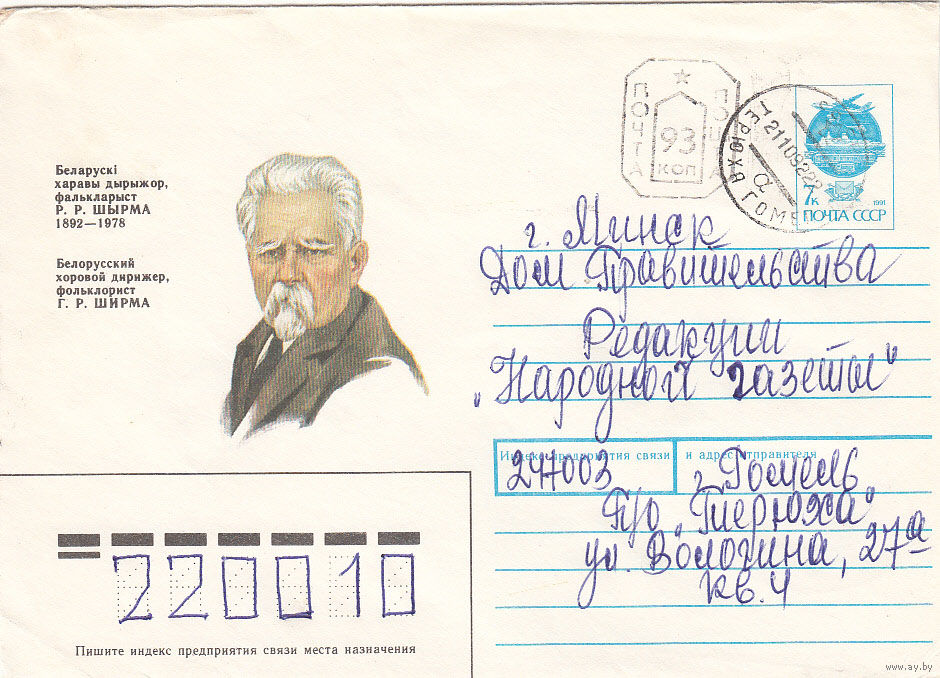 Беларускі
харавы дырыжор,
фалькларыст
Р. Р. ШЫРМА
1892—1978
Белорусский
хоровой дирижер,
фольклорист
Г. Р. ШИРМА
ПОЧТА
ПОШТА
93
КОП
ТЕРЮХА
ГОМЕ
7к
1991
ПОЧТА СССР
г. Минск
Дом Правительства
Редакции
„Народной газеты"
Индекс предприятия связи и адрес отправителя
247003 г. Гомель
П/о „Терюха"
ул. Вологина, 27а
кв. 4
220010
Пишите индекс предприятия связи места назначения
www.ay.by